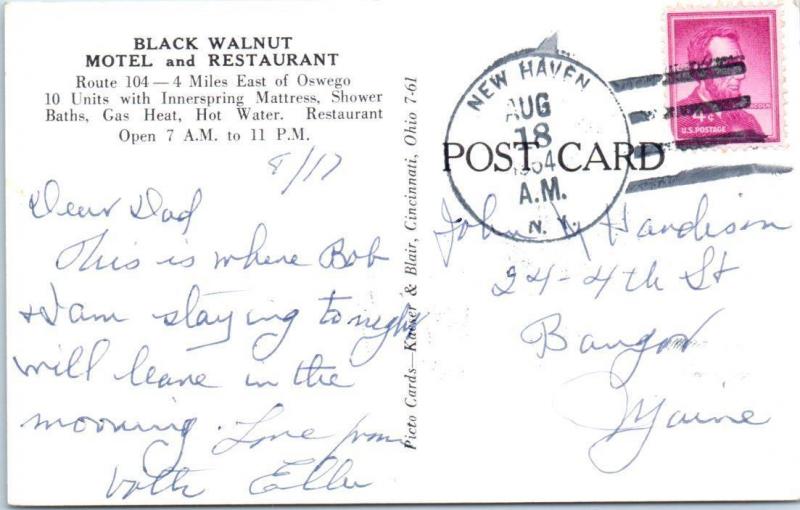 BLACK WALNUT
MOTEL and RESTAURANT
Route 104 — 4 Miles East of Oswego
10 Units with Innerspring Mattress, Shower
Baths, Gas Heat, Hot Water. Restaurant
Open 7 A.M. to 11 P.M.
8/17
Dear Dad
This is where Bob
& I am staying tonight
will leave in the
morning. Love from
both Ella
Picto Cards—Kaeser & Blair, Cincinnati, Ohio 7-61
NEW HAVEN
AUG
18
1964
A.M.
N. Y.
LINCOLN
4¢
U.S. POSTAGE
POST CARD
John Hardison
24-4th St
Bangor
Maine